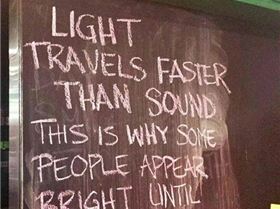 LIGHT
TRAVELS FASTER
THAN SOUND
THIS IS WHY SOME
PEOPLE APPEAR
BRIGHT UNTIL